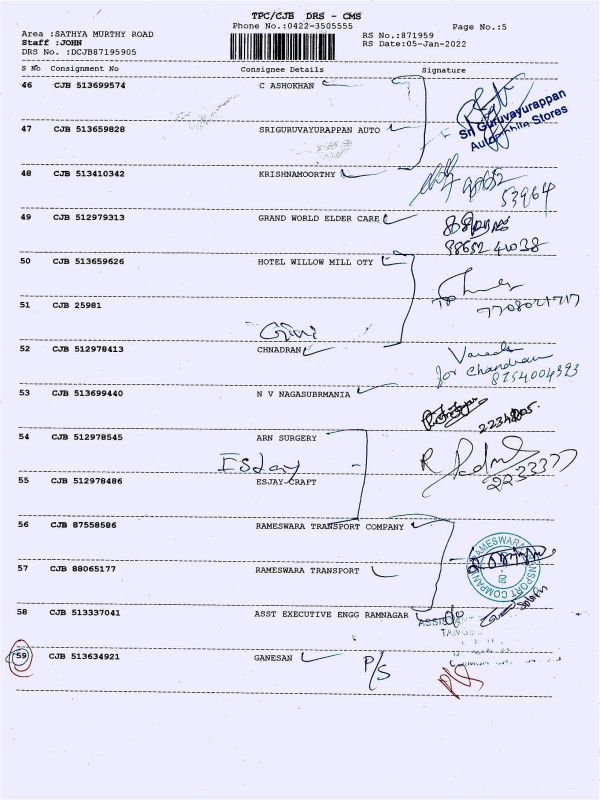 TPC/CJB DRS - CMS
Phone No.:0422-3505555
Page No.:5
Area :SATHYA MURTHY ROAD
Staff :JOHN
DRS No. :DCJB87195905
RS No.:871959
RS Date:05-Jan-2022
S No Consignment No Consignee Details Signature
46 CJB 513699574 C ASHOKHAN
Sri Guruvayurappan
Automobile Stores
47 CJB 513659828 SRIGURUVAYURAPPAN AUTO
48 CJB 513410342 KRISHNAMOORTHY
53964
49 CJB 512979313 GRAND WORLD ELDER CARE
98652 41038
50 CJB 513659626 HOTEL WILLOW MILL OTY
7708021717
51 CJB 25981
Giri
52 CJB 512978413 CHNADRAN
for Chandran
8754004593
53 CJB 513699440 N V NAGASUBRMANIA
54 CJB 512978545 ARN SURGERY
ESJay
R Padma
2233377
55 CJB 512978486 ESJAY-CRAFT
56 CJB 87558586 RAMESWARA TRANSPORT COMPANY
RAMESWARA TRANSPORT COMPANY
57 CJB 88065177 RAMESWARA TRANSPORT
58 CJB 513337041 ASST EXECUTIVE ENGG RAMNAGAR
59 CJB 513634921 GANESAN
P/S
P/S